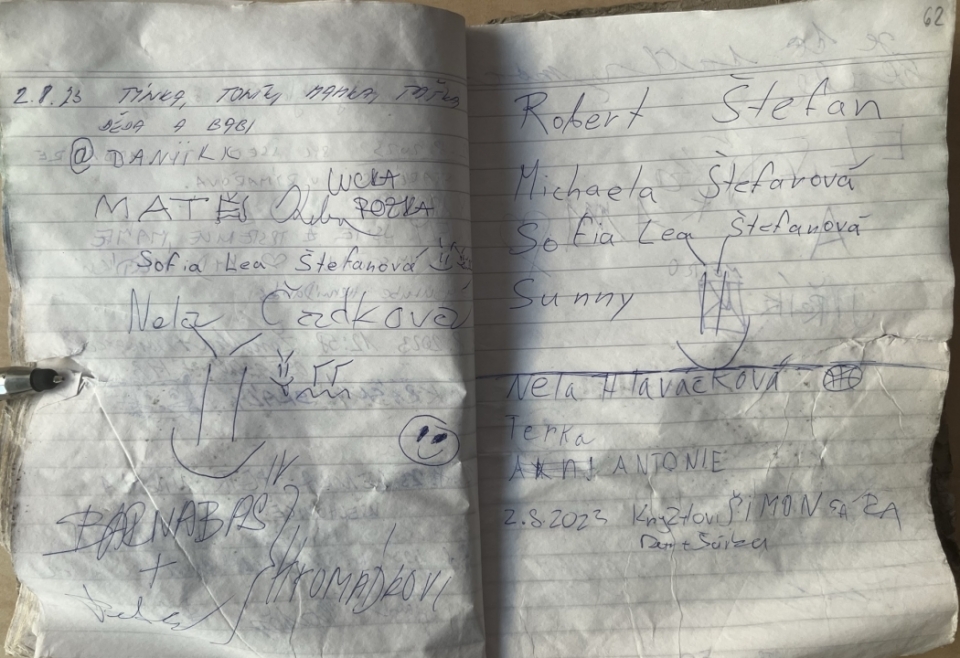 2.8.23 TÍNKA, TONÍK, MAMKA, TAŤKA
DĚDA A BABI
@ DANIIKK
LUCKA
MATĚJ
Sofia Lea Štefanová
Nela Čadková
BARNABAS
+
HROMÁDKOVI
62
Robert Štefan
Michaela Štefanová
Sofia Lea Štefanová
Sunny
Nela Hlaváčková
Terka
ANTONIE
2.8.2023 ŠIMON SÁRA